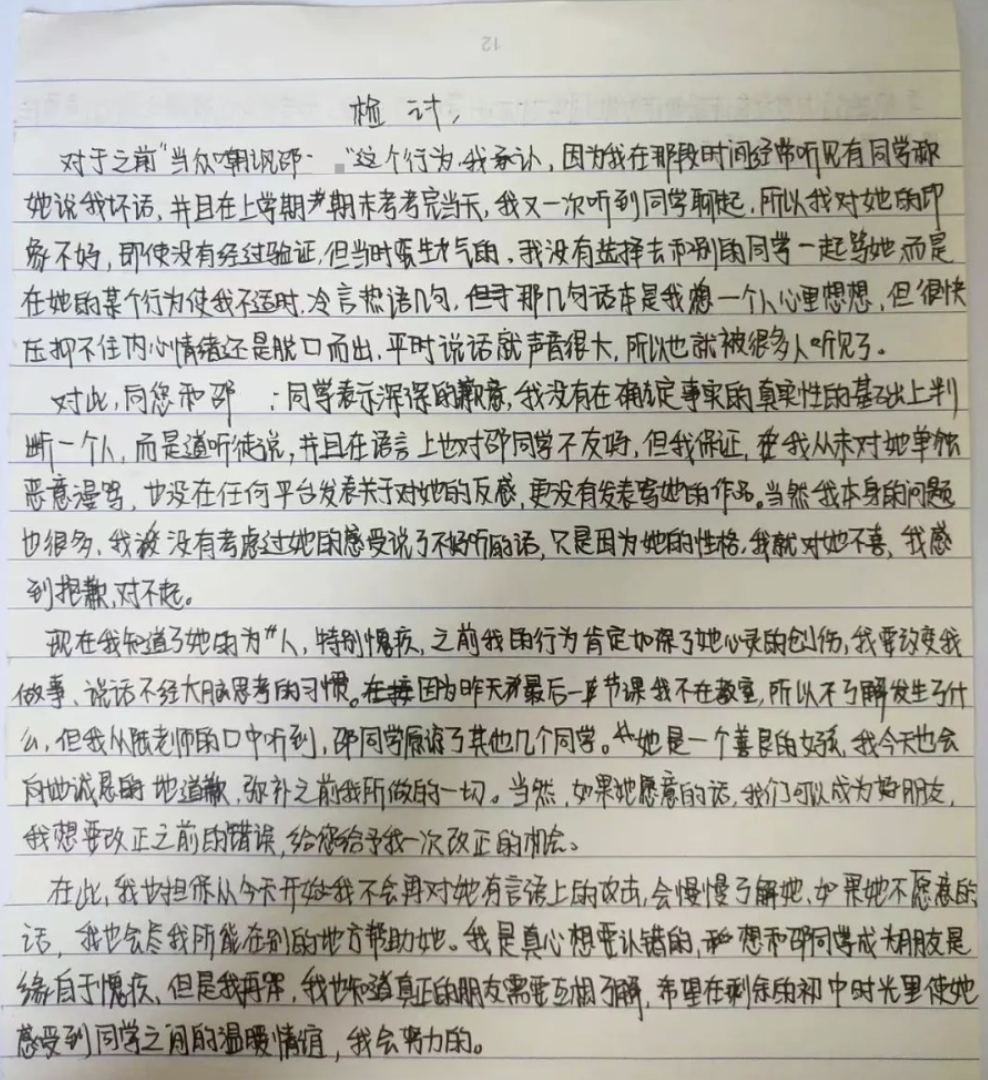 12
检讨
对于之前“当众嘲讽邵 ”这个行为,我承认,因为我在那段时间经常听见有同学称
她说我坏话,并且在上学期期末考考完当天,我又一次听到同学聊起,所以我对她的印
象不好,即使没有经过验证,但当时蛮生气的,我没有选择去和别的同学一起骂她,而是
在她的某个行为使我不适时,冷言热语几句,那几句话本是我想一个人心里想想,但很快
压抑不住内心情绪还是脱口而出,平时说话就声音很大,所以也就被很多人听见了。
对此,向您和邵 同学表示深深的歉意,我没有在确定事实的真实性的基础上判
断一个人,而是道听徒说,并且在语言上也对邵同学不友好,但我保证,我从未对她单独
恶意漫骂,也没在任何平台发表关于对她的反感,更没有发表骂她的作品。当然我本身的问题
也很多,我没有考虑过她的感受说了不好听的话,只是因为她的性格,我就对她不喜,我感
到抱歉,对不起。
现在我知道了她的为人,特别愧疚,之前我的行为肯定加深了她心灵的创伤,我要改变我
做事、说话不经大脑思考的习惯。因为昨天最后一节课我不在教室,所以不了解发生了什
么,但我从陈老师的口中听到,邵同学原谅了其他几个同学。她是一个善良的女孩,我今天也会
向她诚恳的地道歉,弥补之前我所做的一切。当然,如果她愿意的话,我们可以成为好朋友,
我想要改正之前的错误,给您给予我一次改正的机会。
在此,我也担保从今天开始我不会再对她有言语上的攻击,会慢慢了解她,如果她不愿意的
话,我也会尽我所能在别的地方帮助她。我是真心想要认错的,想和邵同学成为朋友是
缘自于愧疚,但是我也知道真正的朋友需要互相了解,希望在剩余的初中时光里使她
感受到同学之间的温暖情谊,我会努力的。